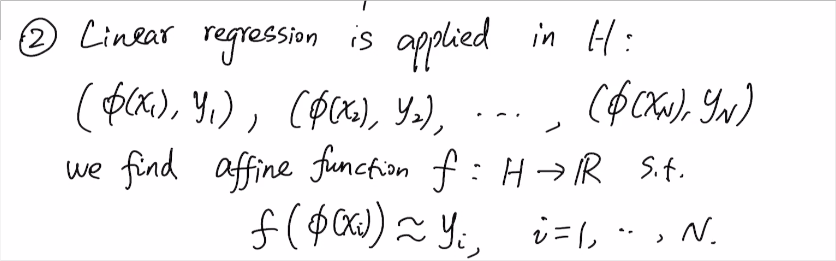 ② Linear regression is applied in H :
( ϕ(x₁), y₁ ) , ( ϕ(x₂), y₂ ) , ⋯ , ( ϕ(x_N), y_N )
we find affine function f : H → ℝ s.t.
f ( ϕ(x_i) ) ≈ y_i , i = 1, ‥ , N.